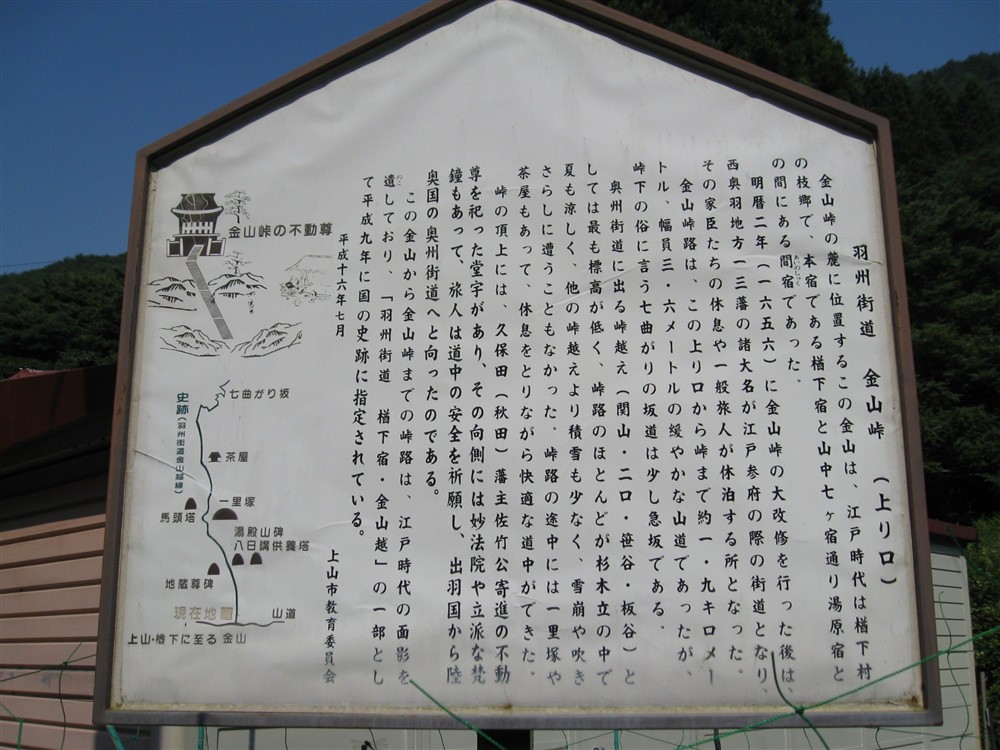 羽州街道　金山峠（上り口）
金山峠の麓に位置するこの金山は、江戸時代は楢下村
の枝郷で、本宿である楢下宿と山中七ヶ宿通り湯原宿と
の間にある間宿であった。
明暦二年（一六五六）に金山峠の大改修を行った後は、
西奥羽地方一三藩の諸大名が江戸参府の際の街道となり、
その家臣たちの休息や一般旅人が休泊する所となった。
金山峠路は、この上り口から峠まで約一・九キロメー
トル、幅員三・六メートルの緩やかな山道であったが、
峠下の俗に言う七曲がりの坂道は少し急坂である。
奥州街道に出る峠越え（関山・二口・笹谷・板谷）と
しては最も標高が低く、峠路のほとんどが杉木立の中で
夏も涼しく、他の峠越えより積雪も少なく、雪崩や吹き
さらしに遭うこともなかった。峠路の途中には一里塚や
茶屋もあって、休息をとりながら快適な道中ができた。
峠の頂上には、久保田（秋田）藩主佐竹公寄進の不動
尊を祀った堂宇があり、その向側には妙法院や立派な梵
鐘もあって、旅人は道中の安全を祈願し、出羽国から陸
奥国の奥州街道へと向ったのである。
この金山から金山峠までの峠路は、江戸時代の面影を
遺しており、「羽州街道　楢下宿・金山越」の一部とし
て平成九年に国の史跡に指定されている。
平成十六年七月
上山市教育委員会
金山峠の不動尊
七曲がり坂
史跡（羽州街道金山越線）
茶屋
一里塚
馬頭塔
湯殿山碑
八日講供養塔
地蔵尊碑
現在地
山道
上山・楢下に至る
金山